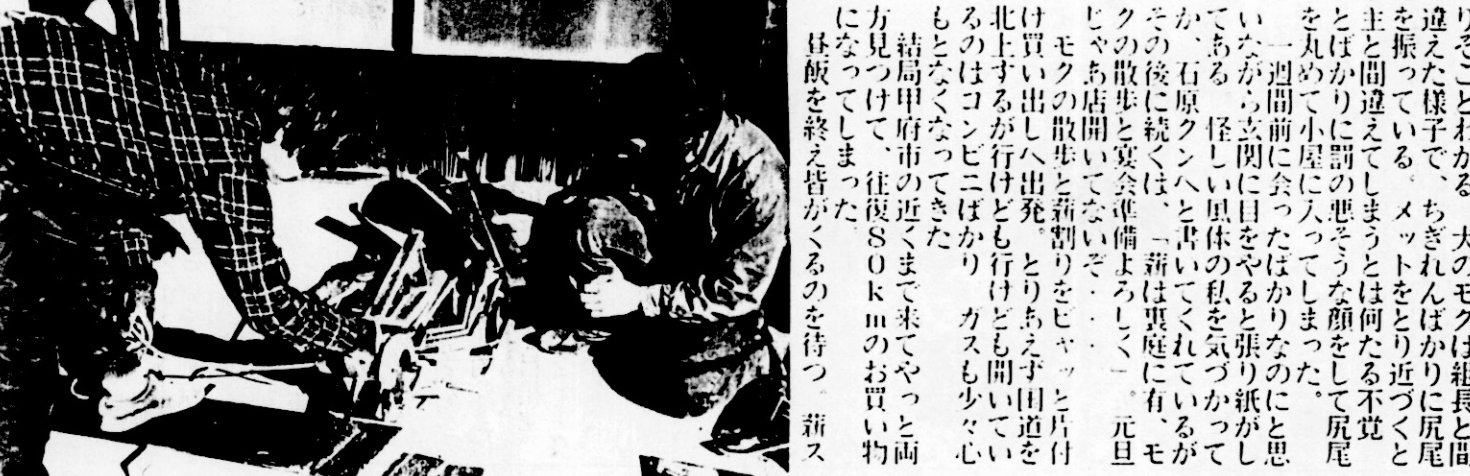 りそことわかる 犬のモクは組長と間
違えた様子で、ちぎれんばかりに尻尾
を振っている。メットをとり近づくと
主と間違えてしまうとは何たる不覚
とばかりに罰の悪そうな顔をして尻尾
を丸めて小屋に入ってしまった。
一週間前に会ったばかりなのにと思
いながら玄関に目をやると張り紙がし
てある 怪しい風体の私を気づかって
か、石原クンへと書いてくれているが
その後に続くは、「薪は裏庭に有、モ
クの散歩と宴会準備よろしく」。元旦
じゃあ店開いてないぞ・・・
モクの散歩と薪割りをピャッと片付
け買い出しへ出発。とりあえず国道を
北上するが行けども行けども開いてい
るのはコンビニばかり ガスも少々心
もとなくなってきた
結局甲府市の近くまで来てやっと両
方見つけて、往復80kmのお買い物
になってしまった。
昼飯を終え皆がくるのを待つ。薪ス